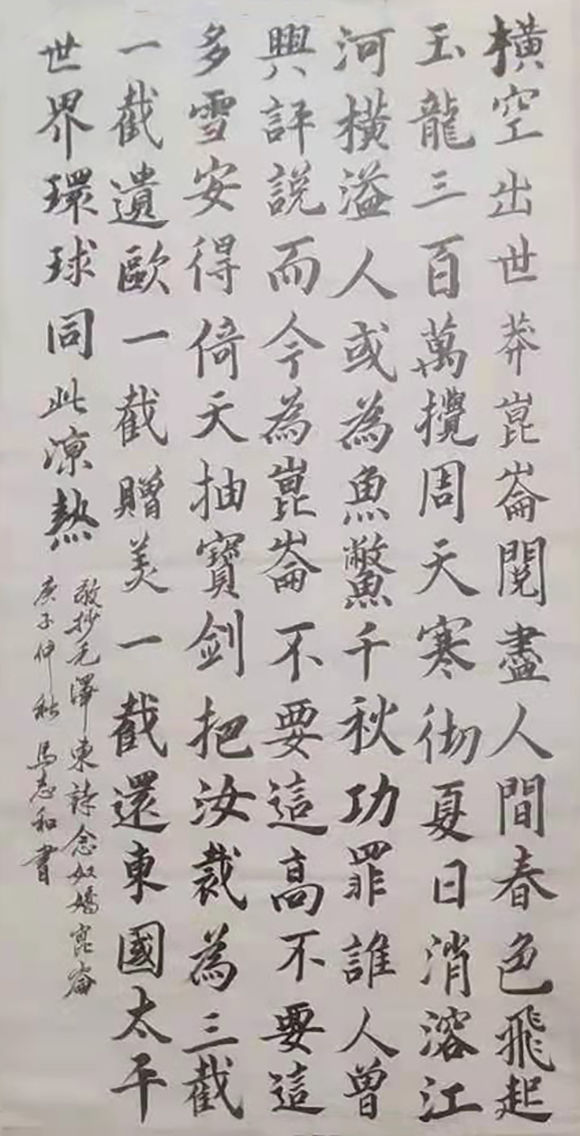 橫空出世莽崑崙閱盡人間春色飛起
玉龍三百萬攪周天寒彻夏日消溶江
河橫溢人或為魚鱉千秋功罪誰人曾
興評説而今為崑崙不要這高不要這
多雪安得倚天抽寶劍把汝裁為三截
一截遺歐一截贈美一截還東國太平
世界環球同此凉熱
敬抄毛澤東詩念奴嬌崑崙
庚子仲秋 馬志和書